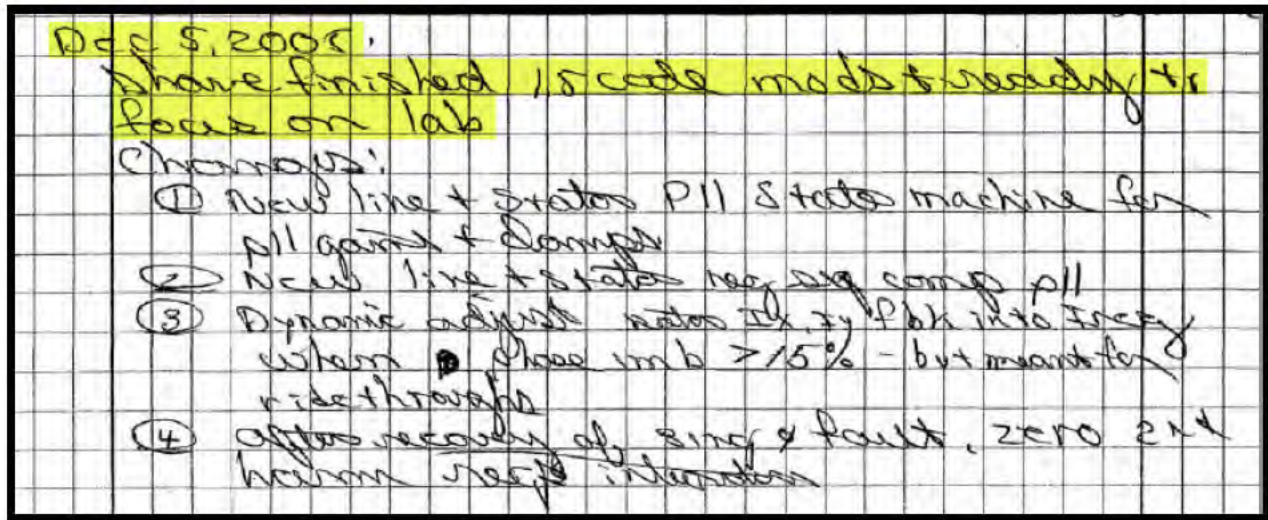 Dec 5, 2005.
I have finished 1s code mods + ready to
focus on lab
Changes:
① New line + Stator Pll State machine for
pll gains + Damps
② New line + stator neg seq comp pll
③ Dynamic adjust rotor Ix, Iy fbk into Ireg
when phase imb > 15% - but meant for
ridethroughs
④ after recovery of sing ϕ fault, zero 2nd
harm regs